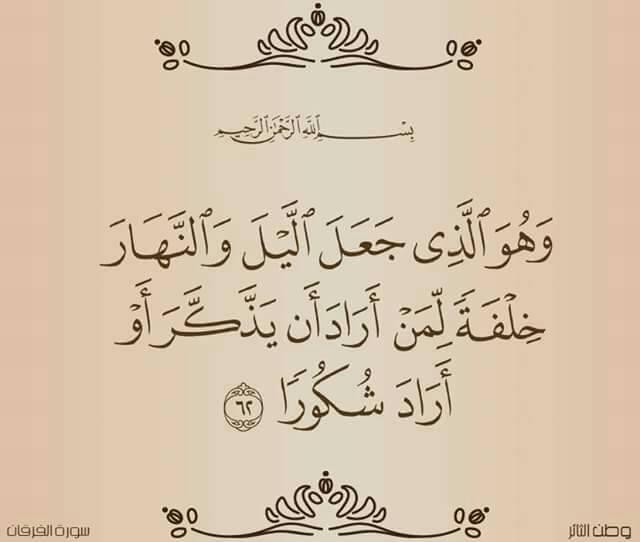 بِسْمِ ٱللَّهِ ٱلرَّحْمَٰنِ ٱلرَّحِيمِ
وَهُوَ ٱلَّذِى جَعَلَ ٱلَّيْلَ وَٱلنَّهَارَ
خِلْفَةً لِّمَنْ أَرَادَ أَن يَذَّكَّرَ أَوْ
أَرَادَ شُكُورًا ٦٢
وطن الثائر
سورة الفرقان